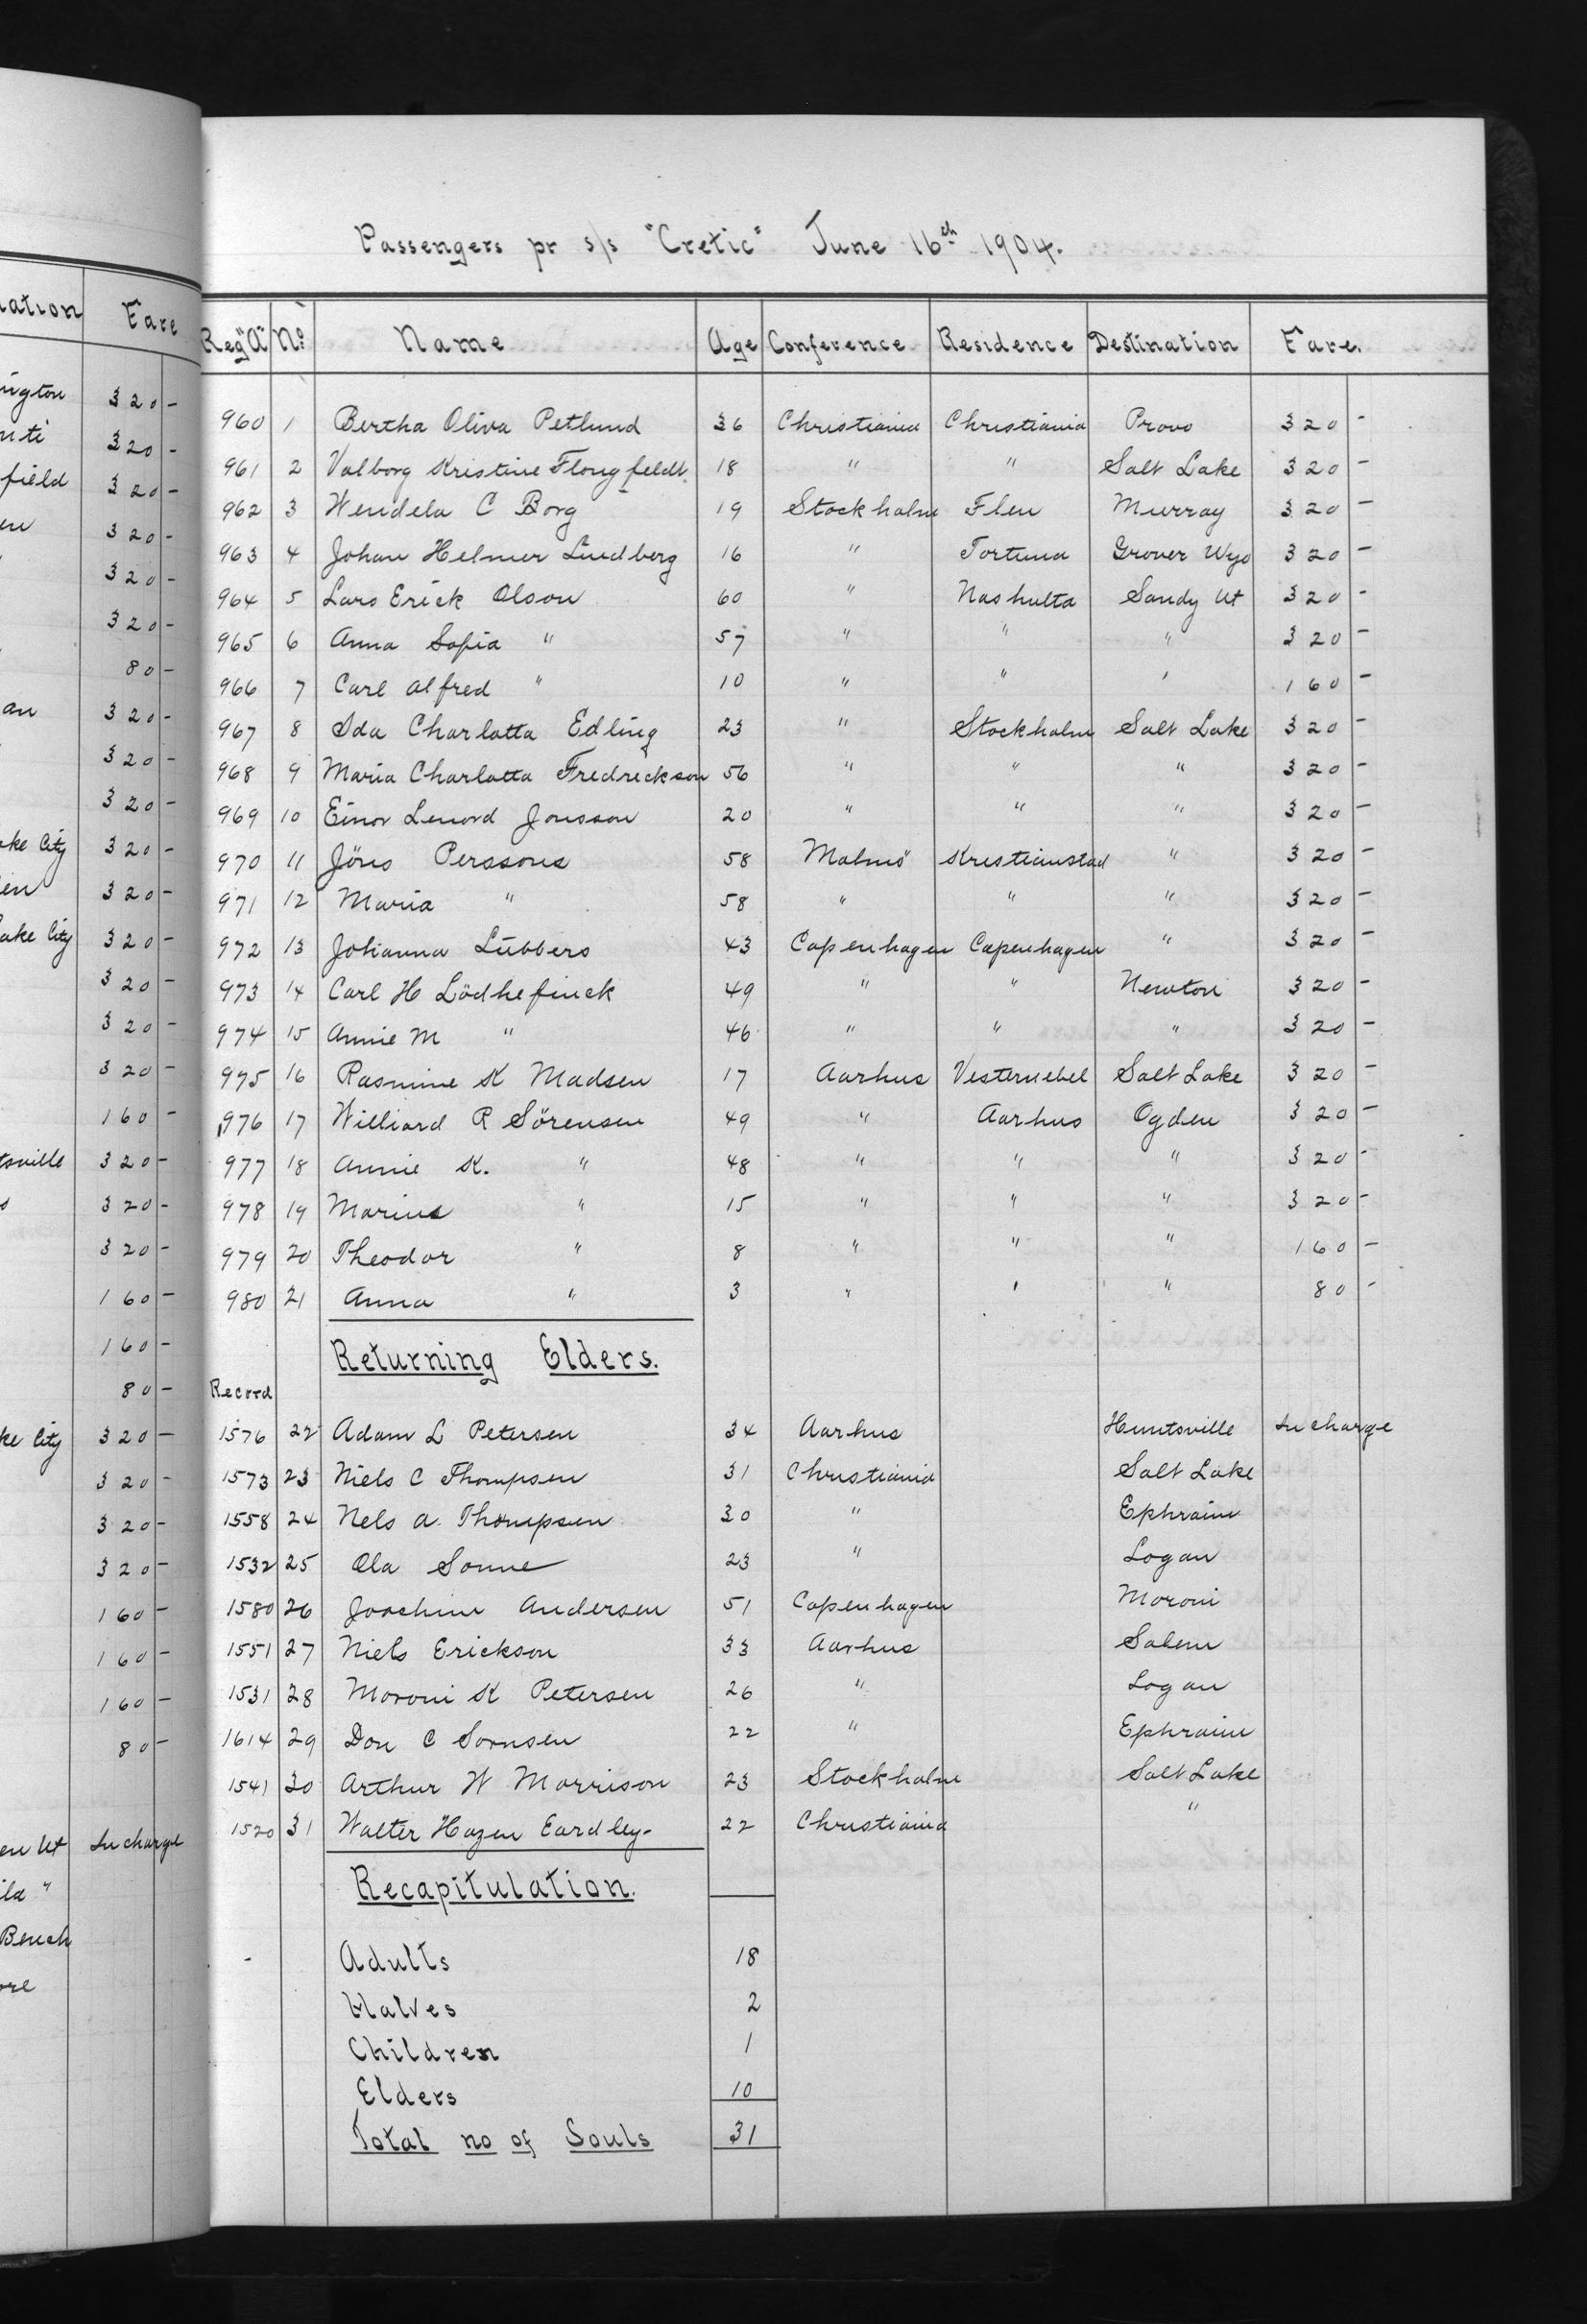 Passengers pr s/s "Cretic" June 16th 1904.
Reg "A" No Name Age Conference Residence Destination Fare.
960 1 Bertha Oliva Petlund 36 Christiania Christiania Provo 320 -
961 2 Valborg Kristine Flongfeldt 18 " " Salt Lake 320 -
962 3 Wendela C Borg 19 Stockholm Flen Murray 320 -
963 4 Johan Helmer Lindberg 16 " Tortuna Grover Wyo 320 -
964 5 Lars Erick Olson 60 " Nashulta Sandy Ut 320 -
965 6 Anna Sofia " 57 " " " 320 -
966 7 Carl Alfred " 10 " " ' 160 -
967 8 Ida Charlotta Edling 23 " Stockholm Salt Lake 320 -
968 9 Maria Charlotta Fredreckson 56 " " " 320 -
969 10 Einor Lenord Jonsson 20 " " " 320 -
970 11 Jöns Perssons 58 Malmö Kristianstad " 320 -
971 12 Maria " 58 " " " 320 -
972 13 Johanna Lübbers 43 Copenhagen Copenhagen " 320 -
973 14 Carl H Lödhefinck 49 " " Newton 320 -
974 15 Annie M " 46 " " " 320 -
975 16 Rasmine K Madsen 17 Aarhus Vesternebel Salt Lake 320 -
976 17 Williard R Sörensen 49 " Aarhus Ogden 320 -
977 18 Annie K. " 48 " " " 320 -
978 19 Marius " 15 " " " 320 -
979 20 Theodor " 8 " " " 160 -
980 21 Anna " 3 " ' " 80 -
Returning Elders.
Record
1576 22 Adam L Petersen 34 Aarhus Huntsville In charge
1573 23 Niels C Thompsen 31 Christiania Salt Lake
1558 24 Nels A. Thompsen 30 " Ephraim
1532 25 Ola Sonne 23 " Logan
1580 26 Joachim Andersen 51 Copenhagen Moroni
1551 27 Niels Erickson 33 Aarhus Salem
1531 28 Moroni K Petersen 26 " Logan
1614 29 Don C Sornsen 22 " Ephraim
1541 30 Arthur W Morrison 23 Stockholm Salt Lake
1520 31 Walter Hazen Eardley- 22 Christiania "
Recapitulation.
Adults 18
Halves 2
Children 1
Elders 10
Total no of Souls 31